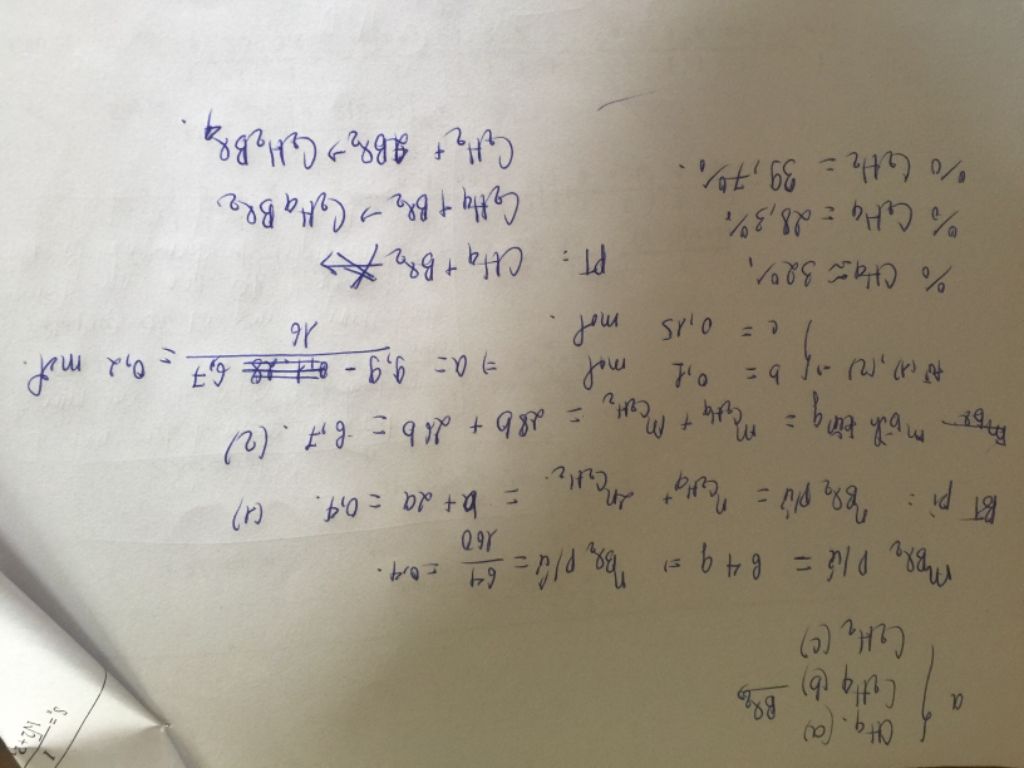 a { CH4 (a)
C2H4 (b) Br2
C2H2 (c)
mBr2 p/ứ = 64 g ⇒ nBr2 p/ứ = 64/160 = 0,4.
BT pi: nBr2 p/ứ = nC2H4 + 2nC2H2 = b + 2a = 0,4. (1)
m bình tăng = mC2H4 + mC2H2 = 28b + 26b = 6,7. (2)
Từ (1), (2) → { b = 0,1 mol ⇒ a = 9,9 - 6,7 / 16 = 0,2 mol.
c = 0,15 mol.
% CH4 ≈ 32%,
% C2H4 = 28,3%
% C2H2 = 39,7%.
PT: CH4 + Br2 →
C2H4 + Br2 → C2H4Br2
C2H2 + 2Br2 → C2H2Br4.